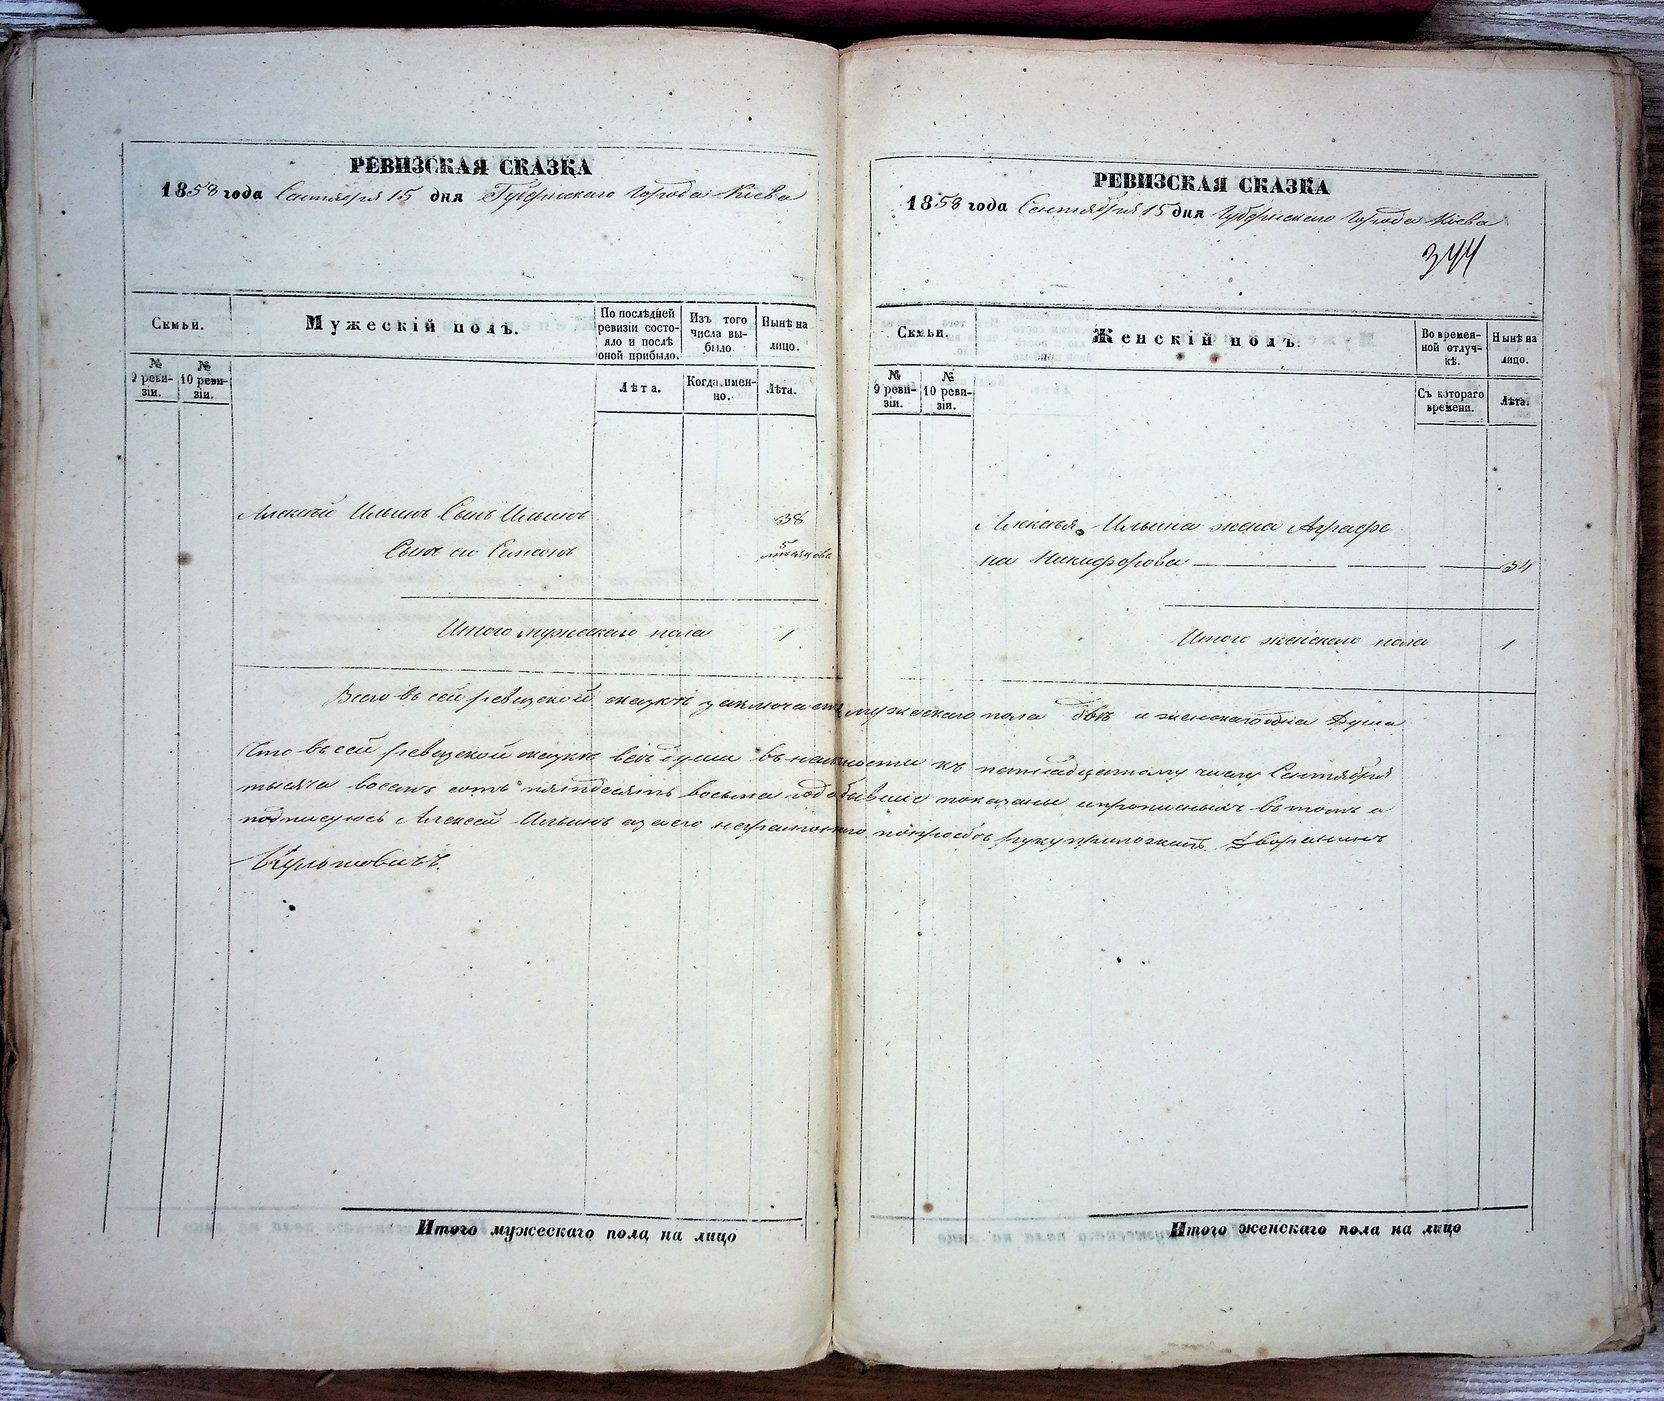 РЕВИЗСКАЯ СКАЗКА
1858 года Сентября 15 дня Губернскаго города Кіева
Семьи.
Мужескій полъ.
По послѣдней ревизіи состояло и послѣ оной прибыло.
Изъ того числа выбыло
Нынѣ на лицо.
№ 9 ревизіи.
№ 10 ревизіи.
Лѣта.
Когда имянно.
Лѣта.
Алексѣй Ильинъ Сынъ Ильинъ 38
Сынъ его 5 мѣсяцовъ
Итого мужескаго пола 1
РЕВИЗСКАЯ СКАЗКА
1858 года Сентября 15 дня Губернскаго города Кіева
344
Семьи.
Женскій полъ.
Во временной отлучкѣ.
Нынѣ на лицо.
№ 9 ревизіи.
№ 10 ревизіи.
Съ котораго времени.
Лѣта.
Алексѣя Ильина жена Аграфе
на Никифорова 34
Итого женскаго пола 1
Всего въ сей ревизской сказкѣ мужескаго пола двѣ и женскаго одна душа
Что въ сей ревизской сказкѣ всѣ души въ къ пятнадцатому числу Сентября
тысяча восемь сотъ пятьдесятъ восьма года показаны въ томъ и
подписуюсь Алексей Ильинъ а за его руку приложилъ Дворянинъ
Итого мужескаго пола на лицо
Итого женскаго пола на лицо